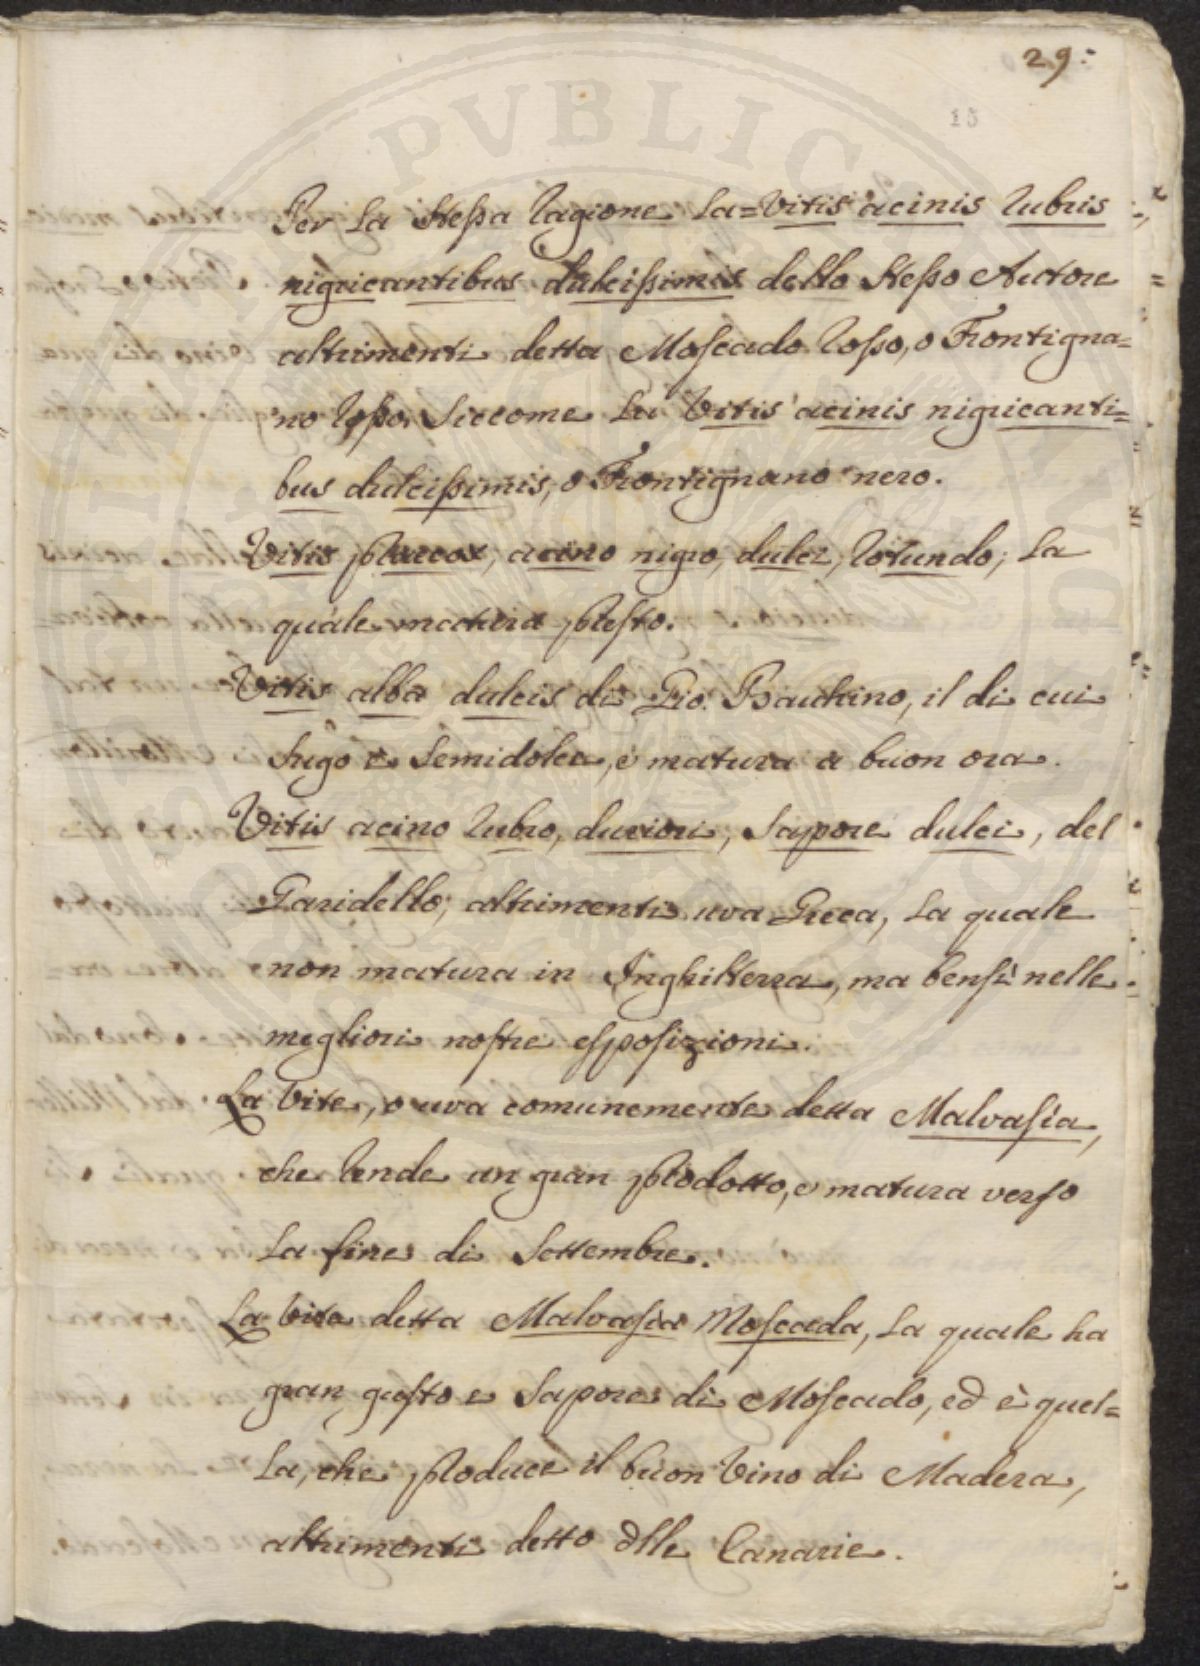 29:
15
Per La stessa ragione La=Vitis acinis rubris
nigricantibus dulcissimis dello stesso Autore
altrimenti detta Moscado rosso, o Frontigna=
no rosso, Siccome La Vitis acinis nigricanti=
bus dulcissimis, o Frontignano nero.
Vitis præcox, acino nigro, dulci, rotundo; La
quale matura presto.
Vitis alba dulcis di Gio: Bauhino, il di cui
sugo è Semidolce, e matura a buon ora.
Vitis acino rubro, duriori, Sapore dulci, del
Garidello; altrimenti uva Greca, La quale
non matura in Inghilterra, ma bensì nelle
megliori nostre esposizioni.
La Vite, o uva comunemente detta Malvasia,
che rende un gran prodotto, e matura verso
La fine di Settembre.
La Vite detta Malvasia Moscada, La quale ha
gran gusto e Sapore di Moscado, ed è quel=
La, che produce il buon Vino di Madera,
altrimenti detto dlle Canarie.